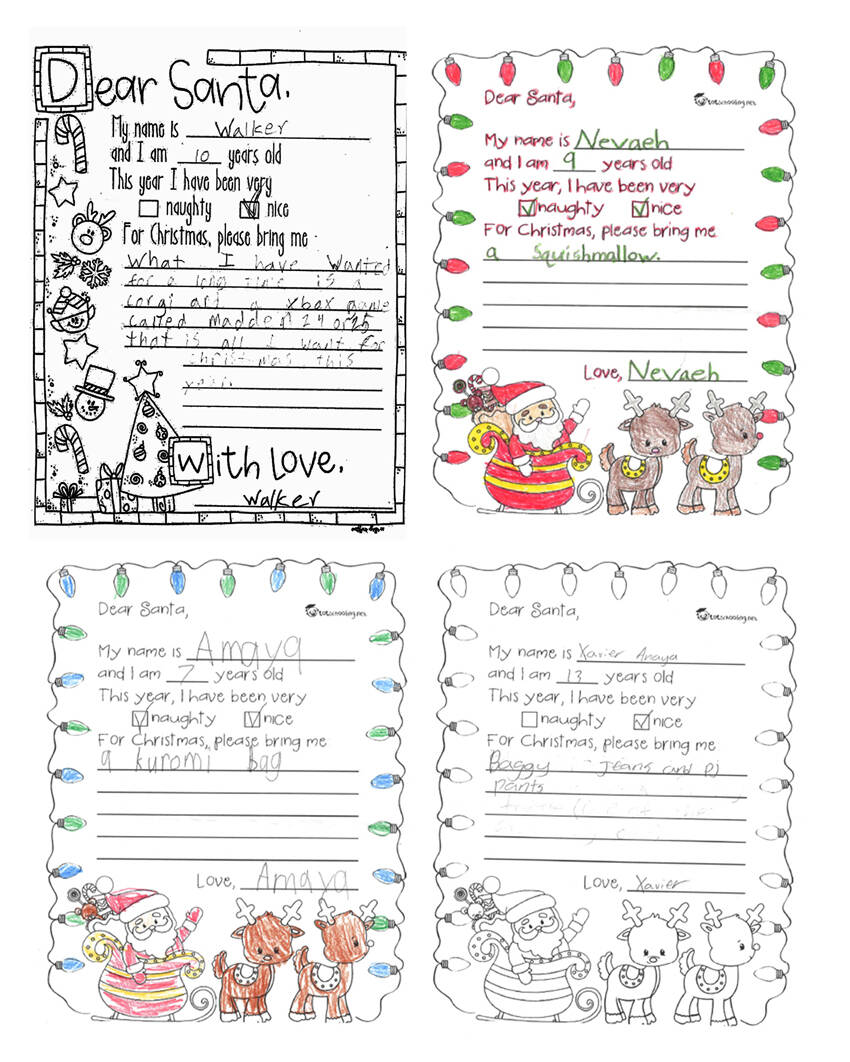 Dear Santa,
My name is Walker
and I am 10 years old
This year I have been very
naughty nice
For Christmas, please bring me
What I have Wanted
for a long time is a
corgi art a xbox game
called Madden 24 or 25
that is all I want for
christmas this
year.
With Love,
Walker
Dear Santa,
totschooling.net
My name is Nevaeh
and I am 9 years old
This year, I have been very
naughty nice
For Christmas, please bring me
a Squishmallow.
Love, Nevaeh
Dear Santa,
totschooling.net
My name is Amaya
and I am 7 years old
This year, I have been very
naughty nice
For Christmas, please bring me
a kuromi bag
Love, Amaya
Dear Santa,
totschooling.net
My name is Xavier Anaya
and I am 13 years old
This year, I have been very
naughty nice
For Christmas, please bring me
Baggy Jeans and PJ
pants
Love, Xavier